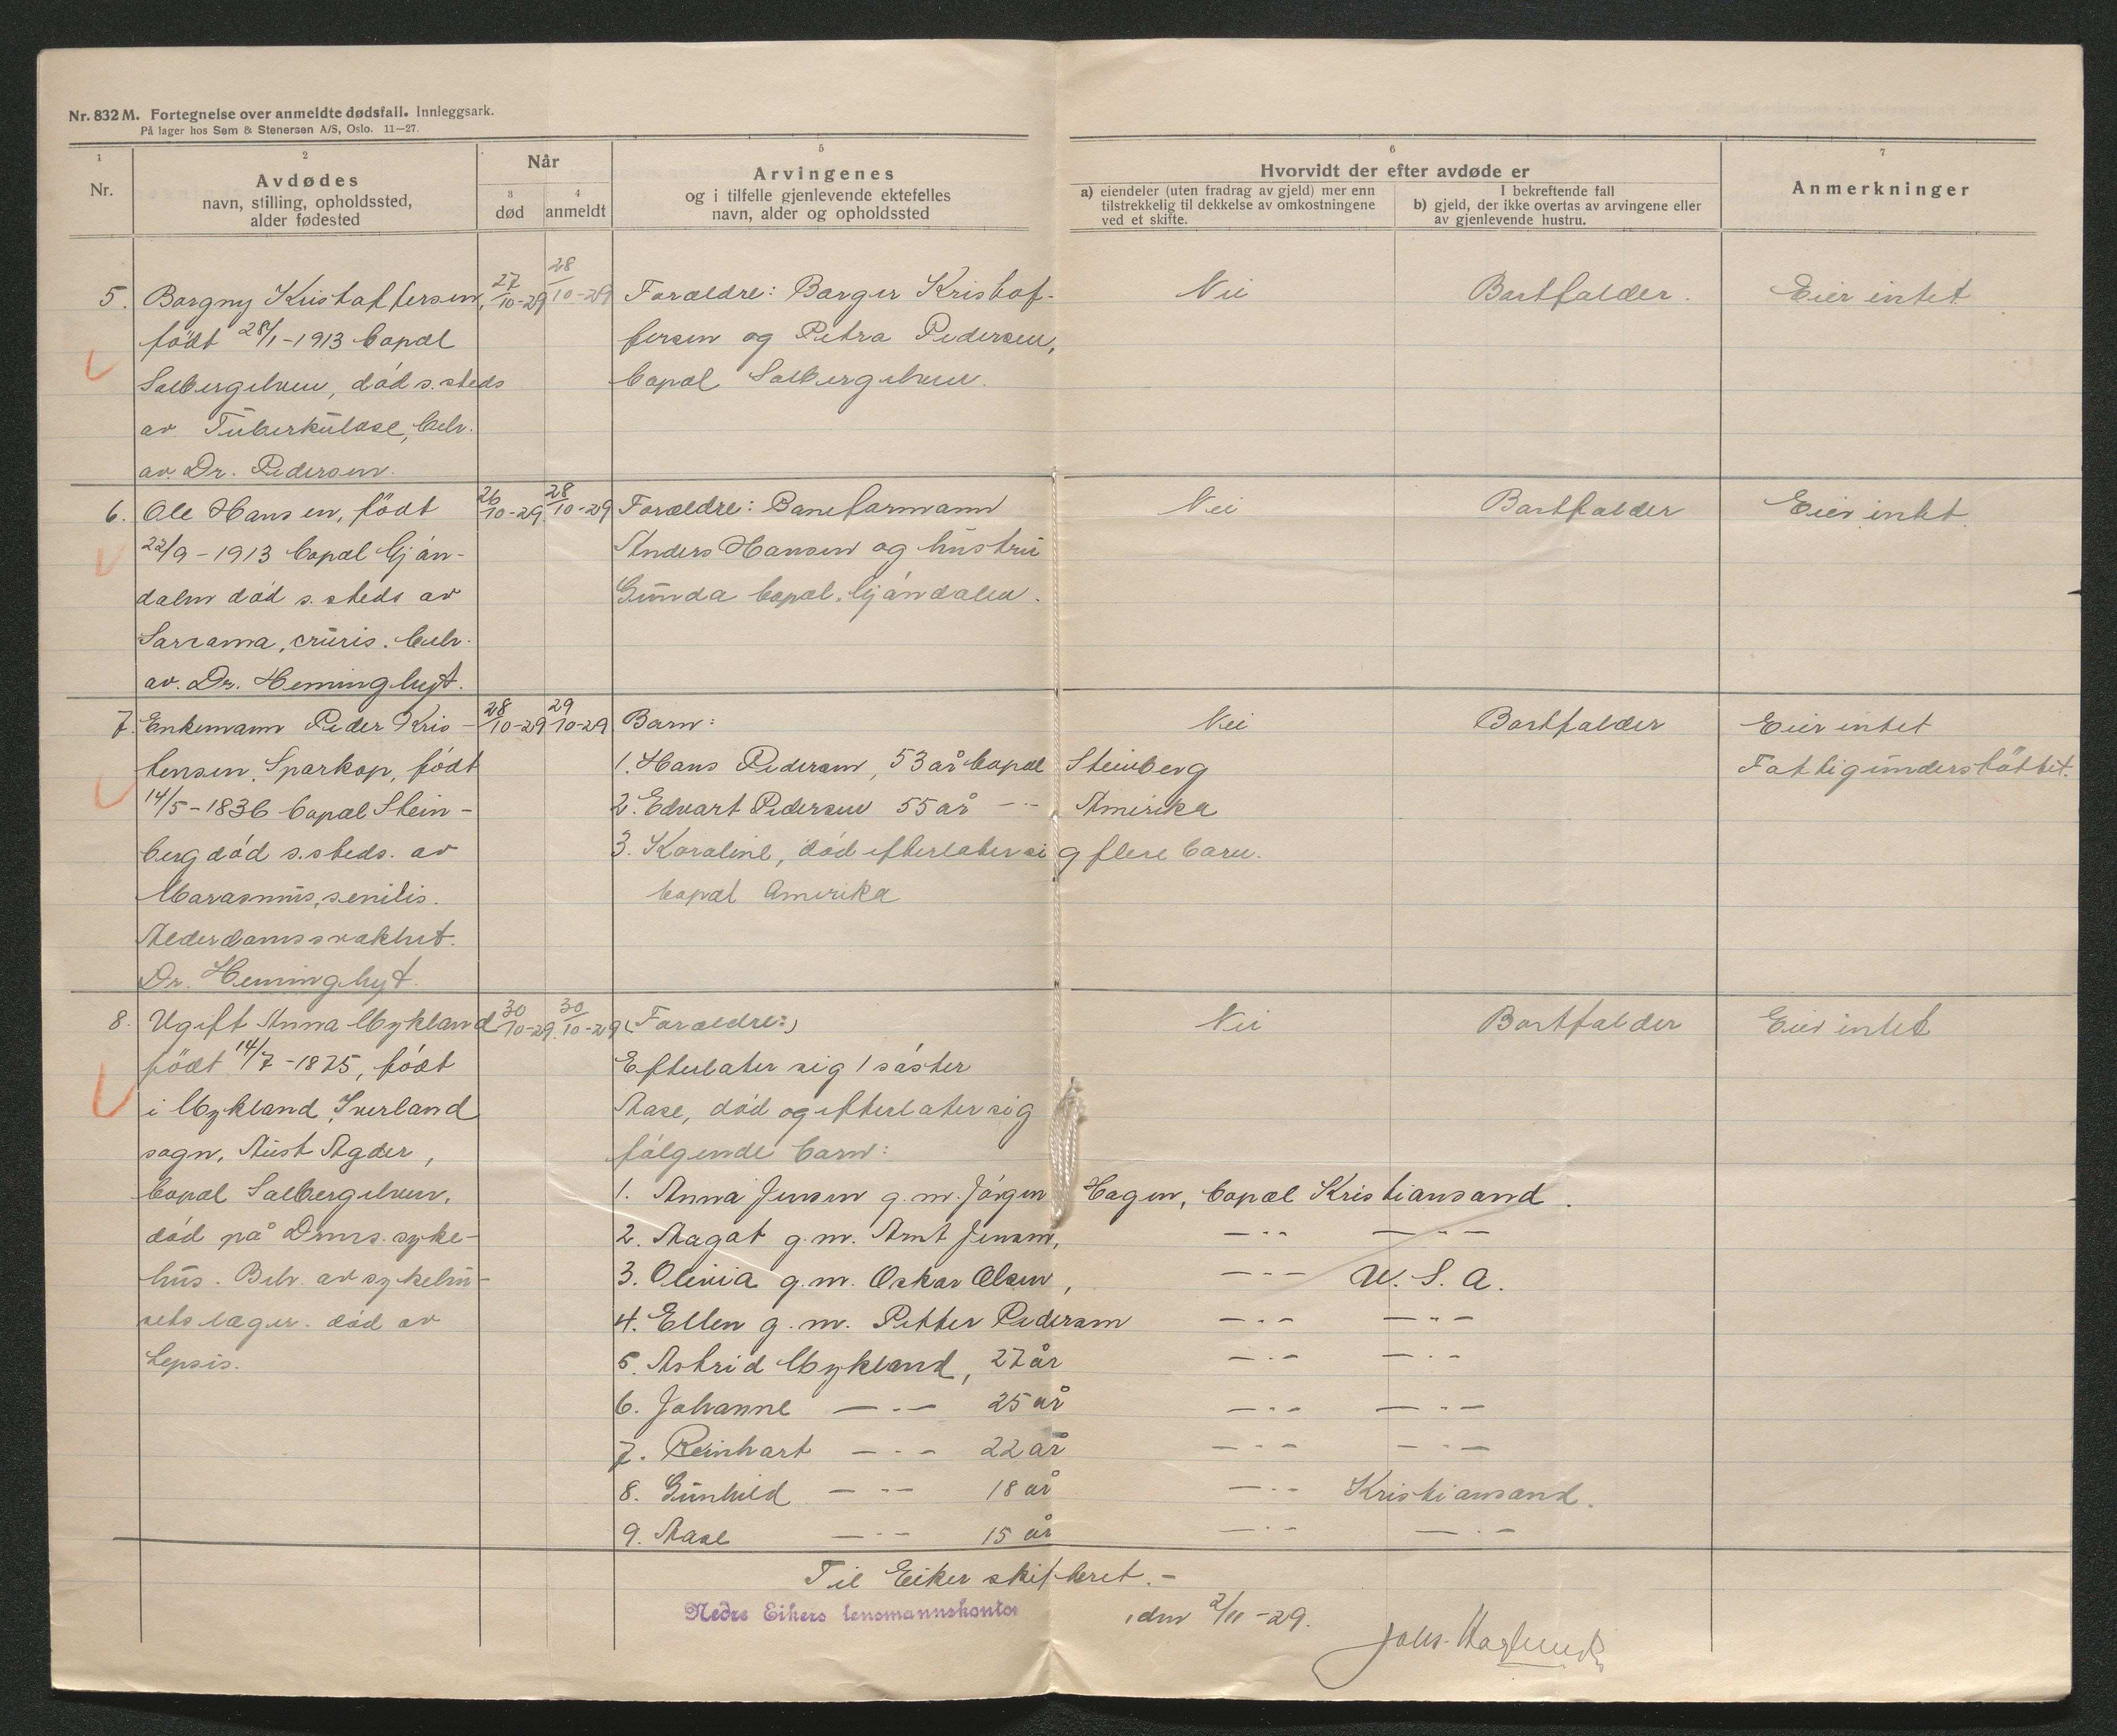 Nr. 832 M. Fortegnelse over anmeldte dødsfall. Innleggsark.
På lager hos Sem & Stenersen A/S, Oslo. 11—27.
1
Nr.
2
Avdødes
navn, stilling, opholdssted,
alder fødested
Når
3
død
4
anmeldt
5
Arvingenes
og i tilfelle gjenlevende ektefelles
navn, alder og opholdssted
6
Hvorvidt der efter avdøde er
a) eiendeler (uten fradrag av gjeld) mer enn
tilstrekkelig til dekkelse av omkostningene
ved et skifte.
I bekreftende fall
b) gjeld, der ikke overtas av arvingene eller
av gjenlevende hustru.
7
Anmerkninger
5. Borgny Kristoffersen, 27/10-29 28/10-29 Foreldre: Borger Kristof- Nei Bortfalder. Eier intet
født 28/1-1913 bopæl fersen og Petra Pedersen,
Solbergelven, død s. steds bopæl Solbergelven.
av Tuberkulose, beh.
av. Dr. Pedersen.
6. Ole Hansen, født 26/10-29 28/10-29 Foreldre: Baneformann Nei Bortfalder Eier intet
22/9-1913 bopæl Mjøn- Anders Hansen og hustru
dalen død s. steds av Gunda bopæl. Mjøndalen.
Sarcoma, cruris. beh.
av. Dr. Heminghyt.
7. Enkemann Peder Kris- 28/10-29 29/10-29 Barn: Nei Bortfalder Eier intet
tensen, Sparkop, født 1. Hans Pedersen, 53 år bopæl Steinberg Fattigunderstøttet.
14/5-1836 bopæl Stein- 2. Edvart Pedersen 55 år -"- Amerika
berg død s. steds. av 3. Karoline, død efterlater sig flere barn.
Marasmus, senilis. bopæl Amerika
Alderdomssvakhet.
Dr. Heminghyt.
8. Ugift Anna Mykland 30/10-29 30/10-29 (Foreldre:) Nei Bortfalder Eier intet
født 14/7-1875, født Efterlater sig 1 søster
i Mykland, Iverland Aase, død og efterlater sig
sogn, Aust Agder, følgende barn:
bopæl Solbergelven, 1. Anna Jensen g. m. Jørgen Hagen, bopæl Kristiansand.
død på Drms. syke- 2. Aagot g. m. Arnt Jensen, -"- -"-
hus. Beh. av sykehu- 3. Olivia g. m. Oskar Olsen, -"- U. S. A.
sets læger. død av 4. Ellen g. m. Petter Pedersen -"- -"-
Sepsis. 5. Astrid Mykland, 27 år -"- -"-
6. Johanne -"- 25 år -"- -"-
7. Reinhart -"- 22 år -"- -"-
8. Gunhild -"- 18 år -"- Kristiansand.
9. Aase -"- 15 år -"- -"-
Til Eiker skifteret.-
Nedre Eikers lensmannskontor, den 2/11-29.